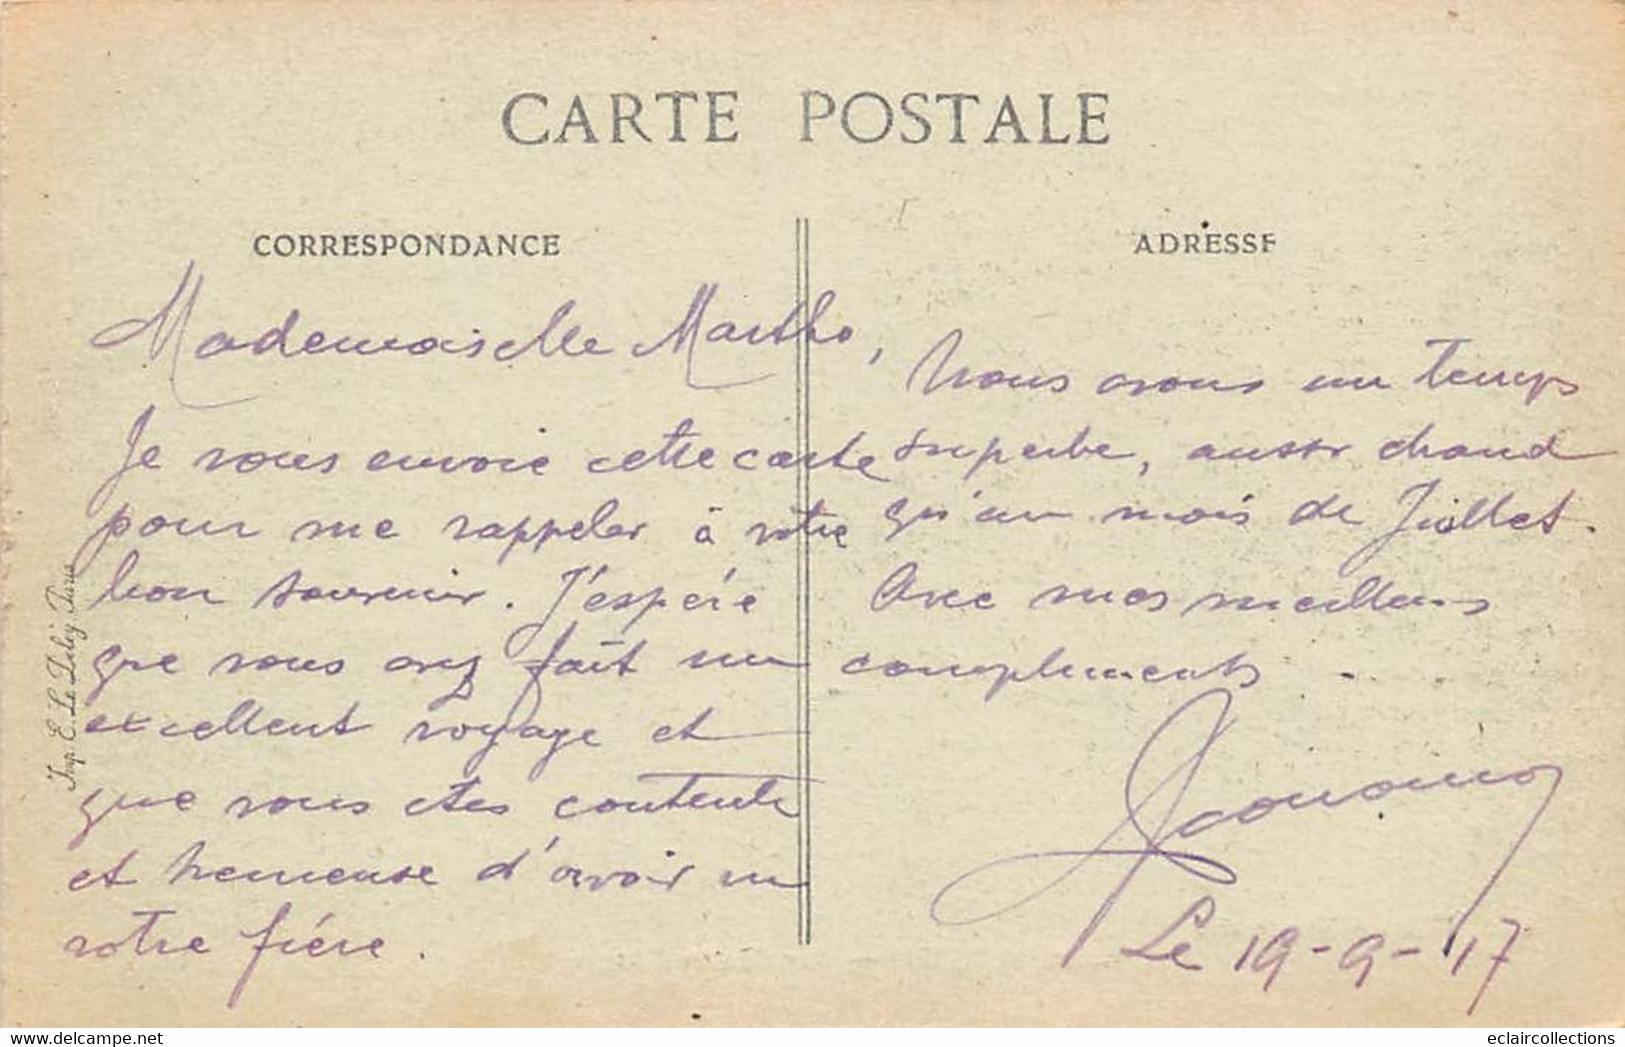 CARTE POSTALE
CORRESPONDANCE
ADRESSE
Mademoiselle Marthe,
Je vous envoie cette carte
pour me rappeler à votre
bon souvenir. J'espère
que vous avez fait un
excellent voyage et
que vous êtes contente
et heureuse d'avoir vu
votre frère.
Nous avons un temps
superbe, aussi chaud
qu'au mois de Juillet.
Avec mes meilleurs
compliments.
Le 19-9-17
Imp. E. Le Deley, Paris
www.delcampe.net
eclaircollections